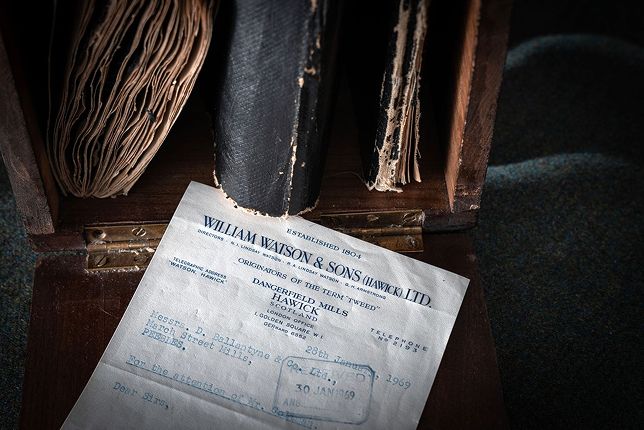 ESTABLISHED 1804
WILLIAM WATSON & SONS (HAWICK) LTD.
DIRECTORS · R. LINDSAY WATSON · R. A. LINDSAY WATSON · G. H. ARMSTRONG
ORIGINATORS OF THE TERM "TWEED"
TELEGRAPHIC ADDRESS
"WATSON, HAWICK"
DANGERFIELD MILLS
HAWICK
SCOTLAND
LONDON OFFICE
1, GOLDEN SQUARE, W.1.
GERRARD 6982
TELEPHONE
Nº 2193
28th 1969
Messrs. D. Ballantyne & Co. Ltd.,
March Street Mills,
PEEBLES.
30 JAN 1969
ANS
For the attention of Mr.
Dear Sirs,